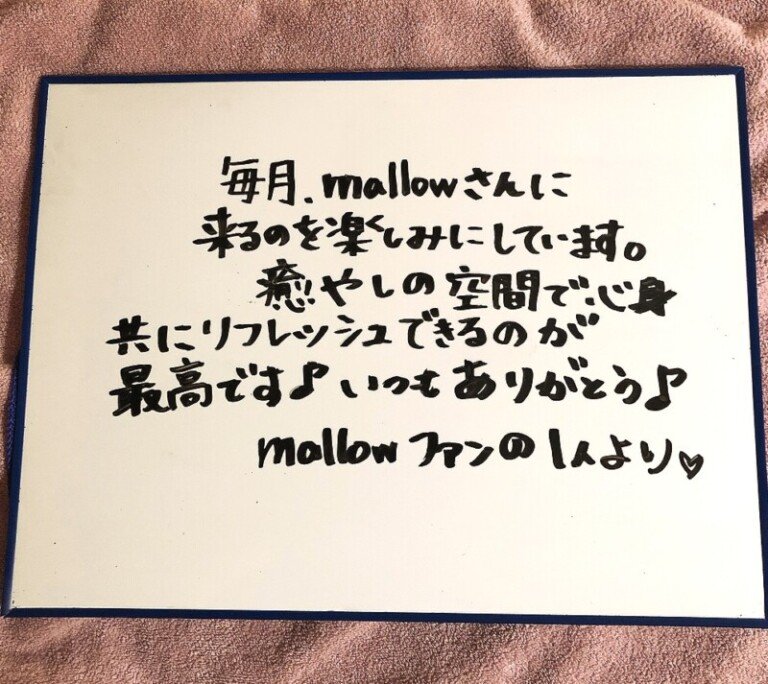 毎月、mallowさんに
来るのを楽しみにしています。
癒やしの空間で心身
共にリフレッシュできるのが
最高です♪いつもありがとう♪
mallowファンの1人より♡